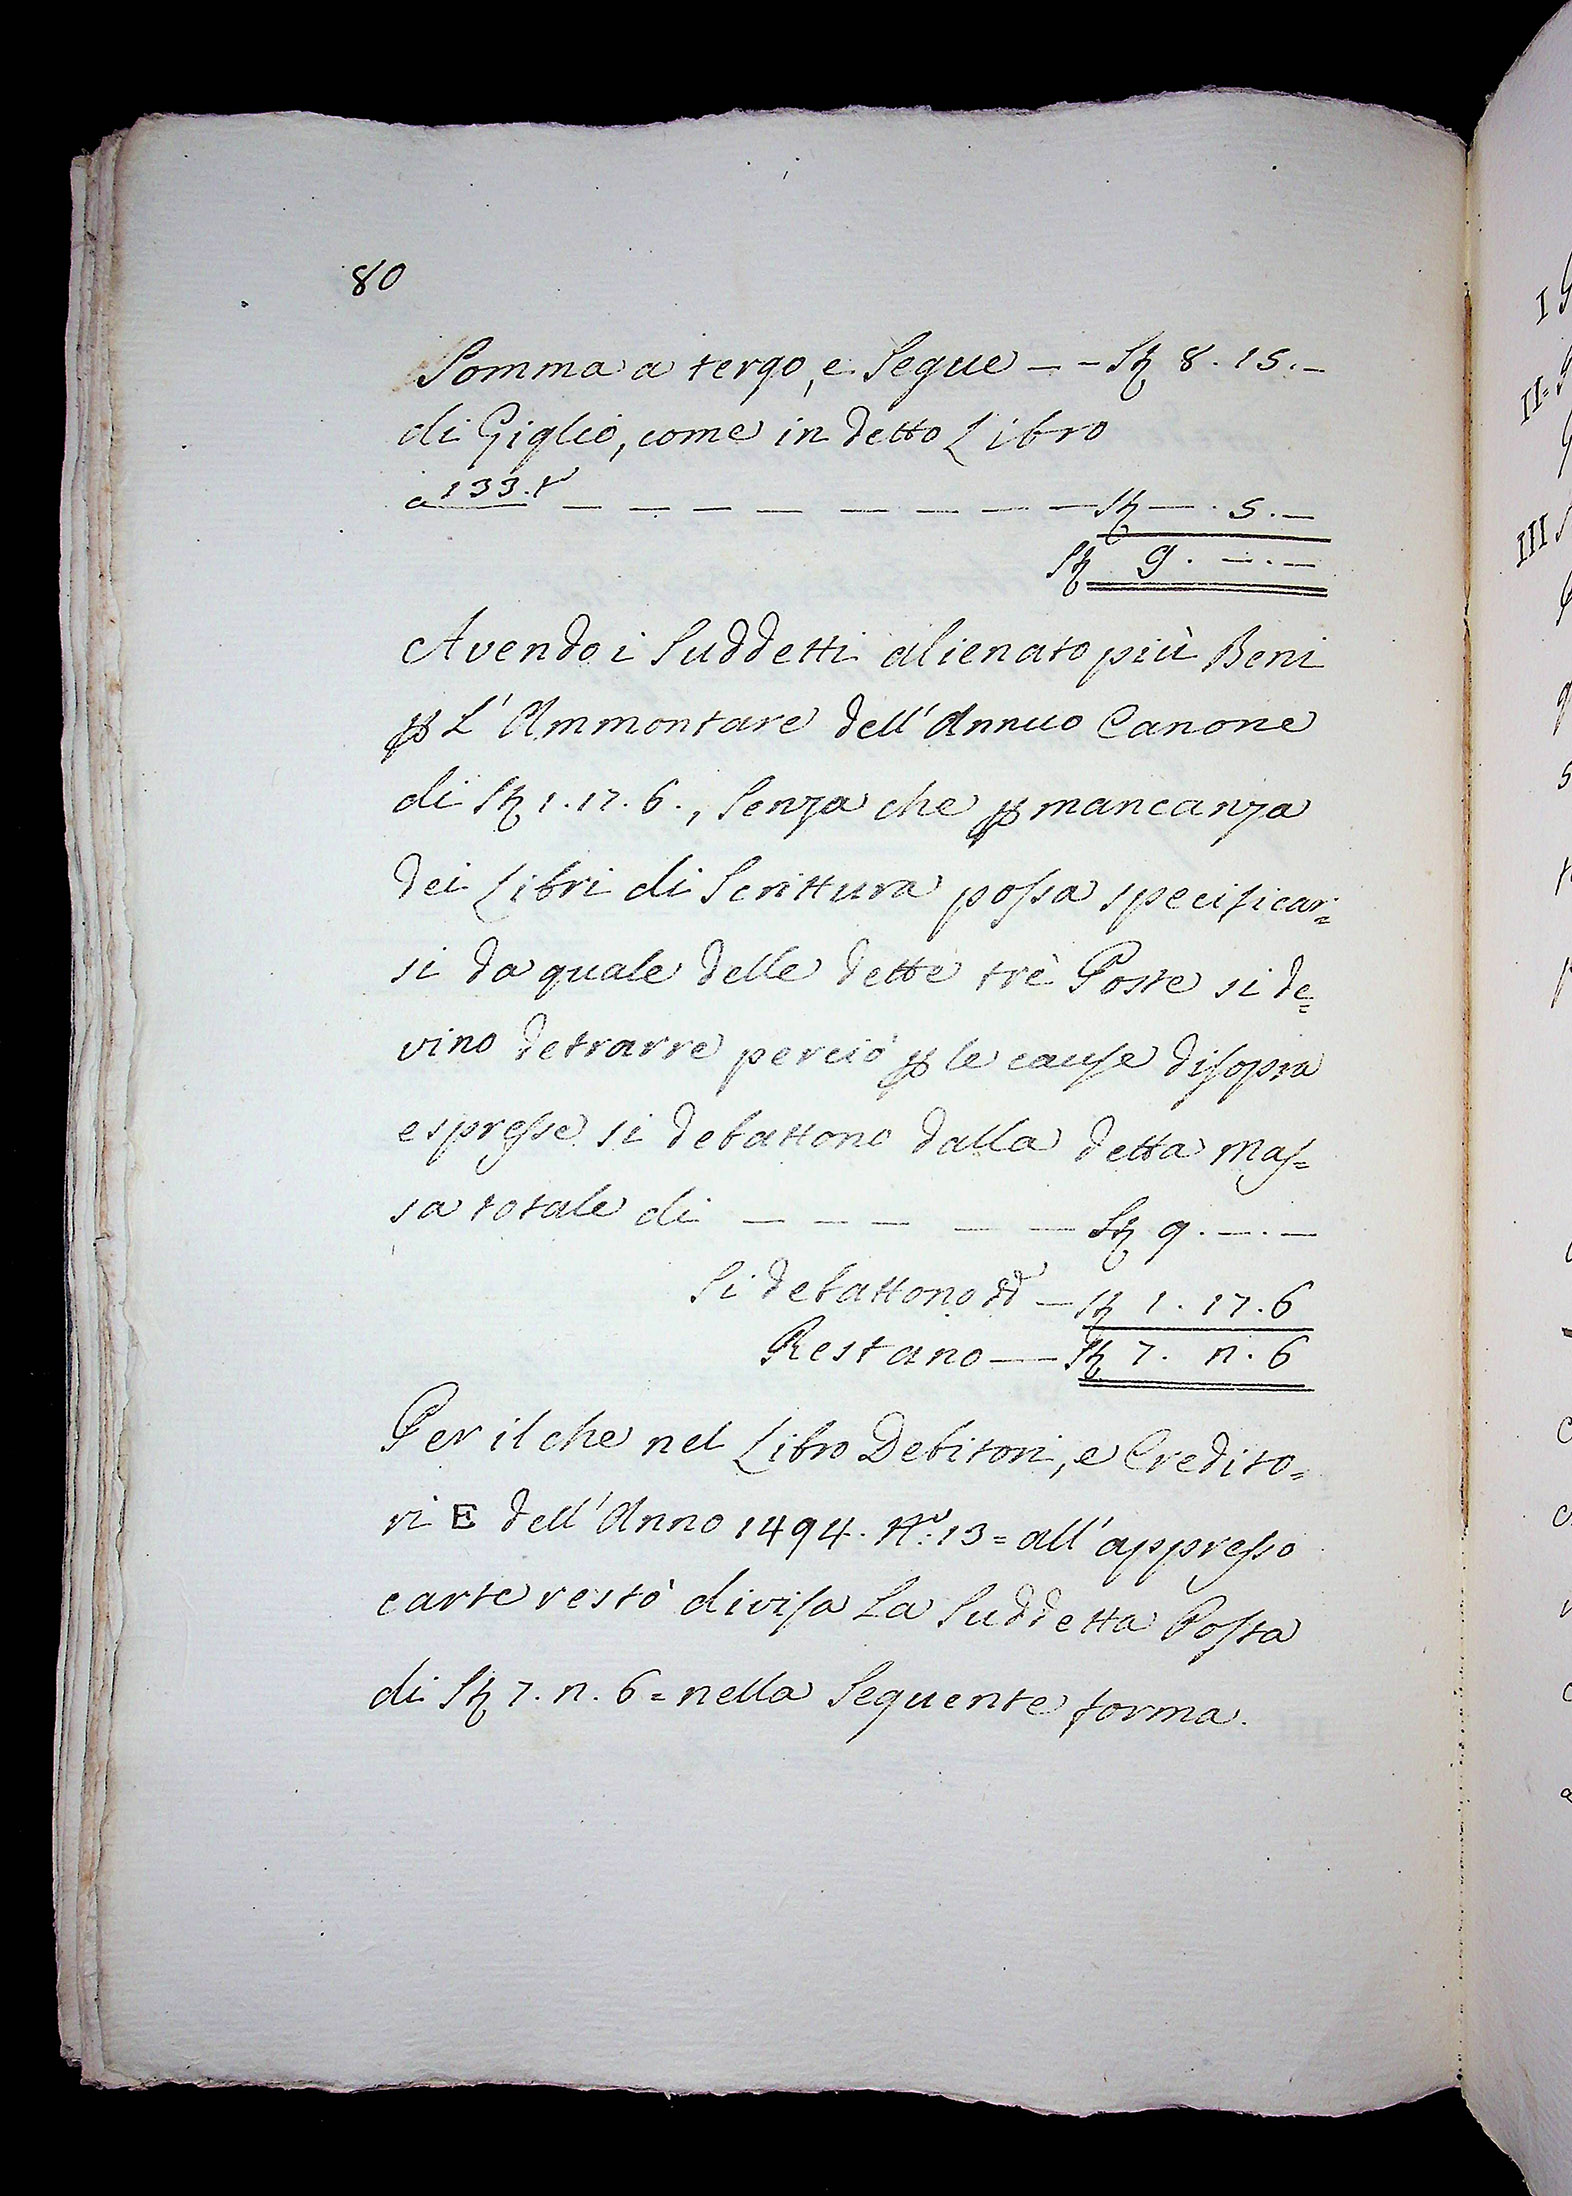 80
Somma a tergo, e Segue – – S𝔷 8. 15. –
di Giglio, come in detto Libro
a 133. t – – – – – – – – – S𝔷 – . 5. –
S𝔷 9. – . –
Avendo i Suddetti alienato più Beni
ꝑ L' Ammontare dell' Annuo Canone
di S𝔷 1. 17. 6., Senza che ꝑ mancanza
dei Libri di Scrittura poſsa specificar=
si da quale delle dette trè Poste si de=
vino detrarre perciò ꝑ le cauſe diſopra
espreſse si debattono dalla detta Maſ=
sa totale di – – – – – S𝔷 9. – . –
Si debattono dd – S𝔷 1. 17. 6
Restano – S𝔷 7. n. 6
Per il che nel Libro Debitori, e Credito=
ri E dell' Anno 1494. N.º 13 = all' appreſso
carte restò diviſa La Suddetta Poſta
di S𝔷 7. n. 6 = nella Seguente forma.
I
II=
III